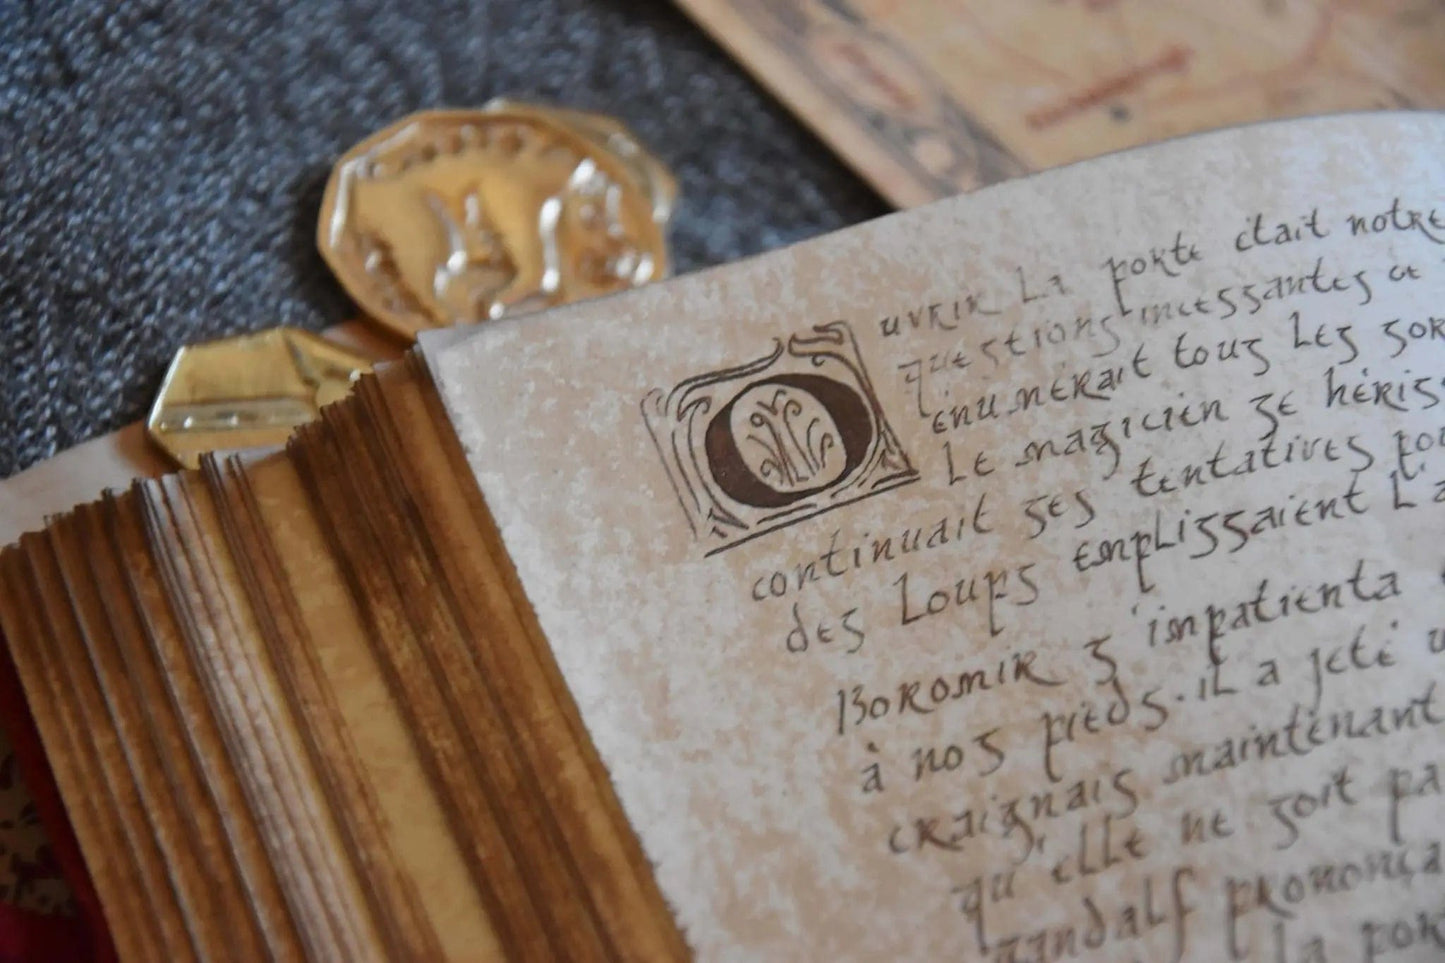 Ouvrir la porte était notre
questions incessantes
énumérait tous les
Le magicien se
continuait ses tentatives
des loups emplissaient
Boromir s'impatienta
à nos pieds. il a jeté
craignais maintenant
qu'elle ne soit
gandalf
la